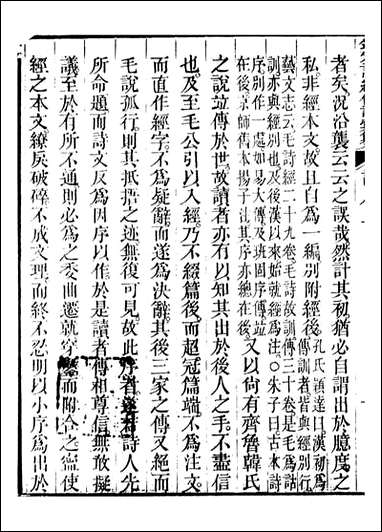 者矣況沿襲云云之誤哉然計其初猶必自謂出於臆度之
私非經本文故且自為一編別附經後
孔氏穎達曰漢初為
傳訓者皆與經別行
藝文志云毛詩經二十九卷毛詩故訓傳三十卷是毛為詁
訓亦與經別也及後漢以來始就經為注○朱子曰古本詩
序別作一處如易大傳及班固序傳竝
在後京師舊本揚子法其序亦總在後
又以尚有齊魯韓氏
之說竝傳於世故讀者亦有以知其出於後人之手不盡信
也及至毛公引以入經乃不綴篇後而超冠篇端不為注文
而直作經字不為疑辭而遂為決辭其後三家之傳又絕而
毛說孤行則其抵捂之迹無復可見故此序者遂若詩人先
所命題而詩文反為因序以作於是讀者傳相尊信無敢擬
議至於有所不通則必為之委曲遷就穿鑿而附合之寧使
經之本文繚戾破碎不成文理而終不忍明以小序為出於